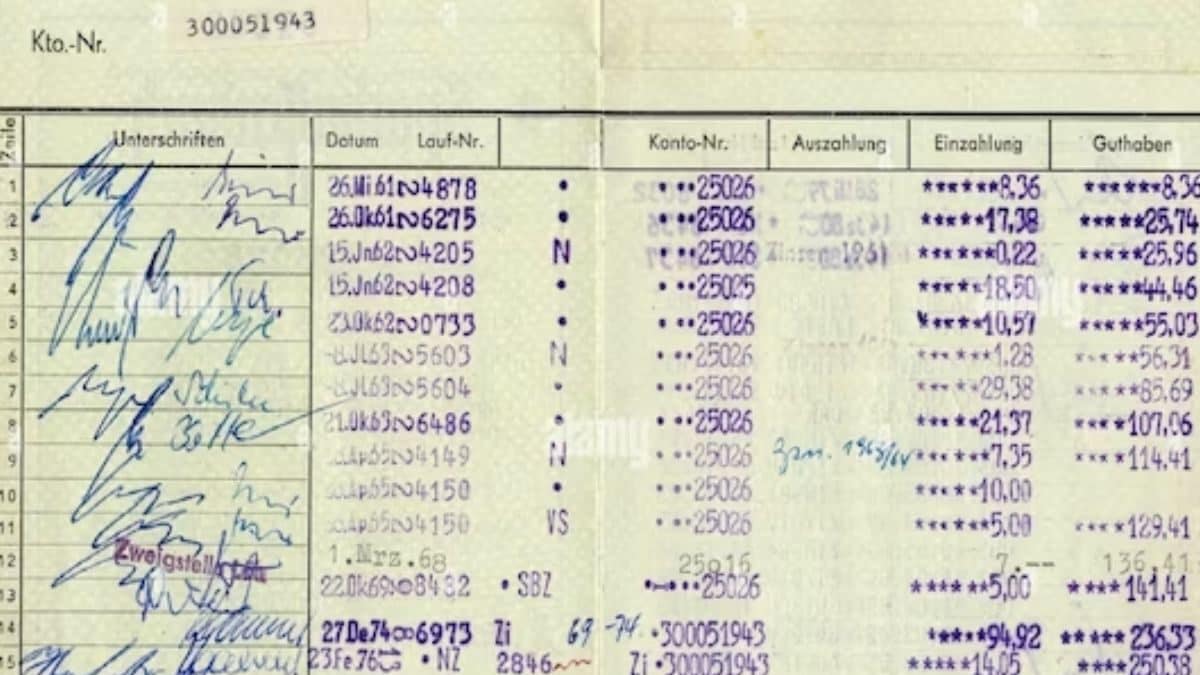 Kto.-Nr. 300051943
Zeile Unterschriften Datum Lauf-Nr. Konto-Nr. Auszahlung Einzahlung Guthaben
1 26.Mi61∾4878 • •••25026 ******8,36 ******8,36
2 26.Ok61∾6275 • •••25026 *****17,38 *****25,74
3 15.Jn62∾4205 N •••25026 1961 ******0,22 *****25,96
4 15.Jn62∾4208 • •••25025 *****18,50 *****44,46
5 23.Ok62∾0733 • •••25026 *****10,57 *****55,03
6 -8.Jl63∾5603 N •••25026 ******1,28 *****56,31
7 -8.Jl63∾5604 • •••25026 *****29,38 *****85,69
8 21.Ok63∾6486 • •••25026 *****21,37 ****107,06
9 Ap65∾4149 N •••25026 Zsn. 1963/64 ******7,35 ****114,41
10 Ap65∾4150 • •••25026 *****10,00
11 Ap65∾4150 VS •••25026 ******5,00 ****129,41
12 Zweigstelle 1.Mrz.68 25016 7.-- 136,41
13 22.Ok69∞8482 • SBZ 25026 ******5,00 ****141,41
14 27De74∞6973 Zi 69-74 •300051943 *****94,92 *****236,33
15 23Fe76 • NZ 2846 Zi •300051943 *****14,05 ****250,38
alamy